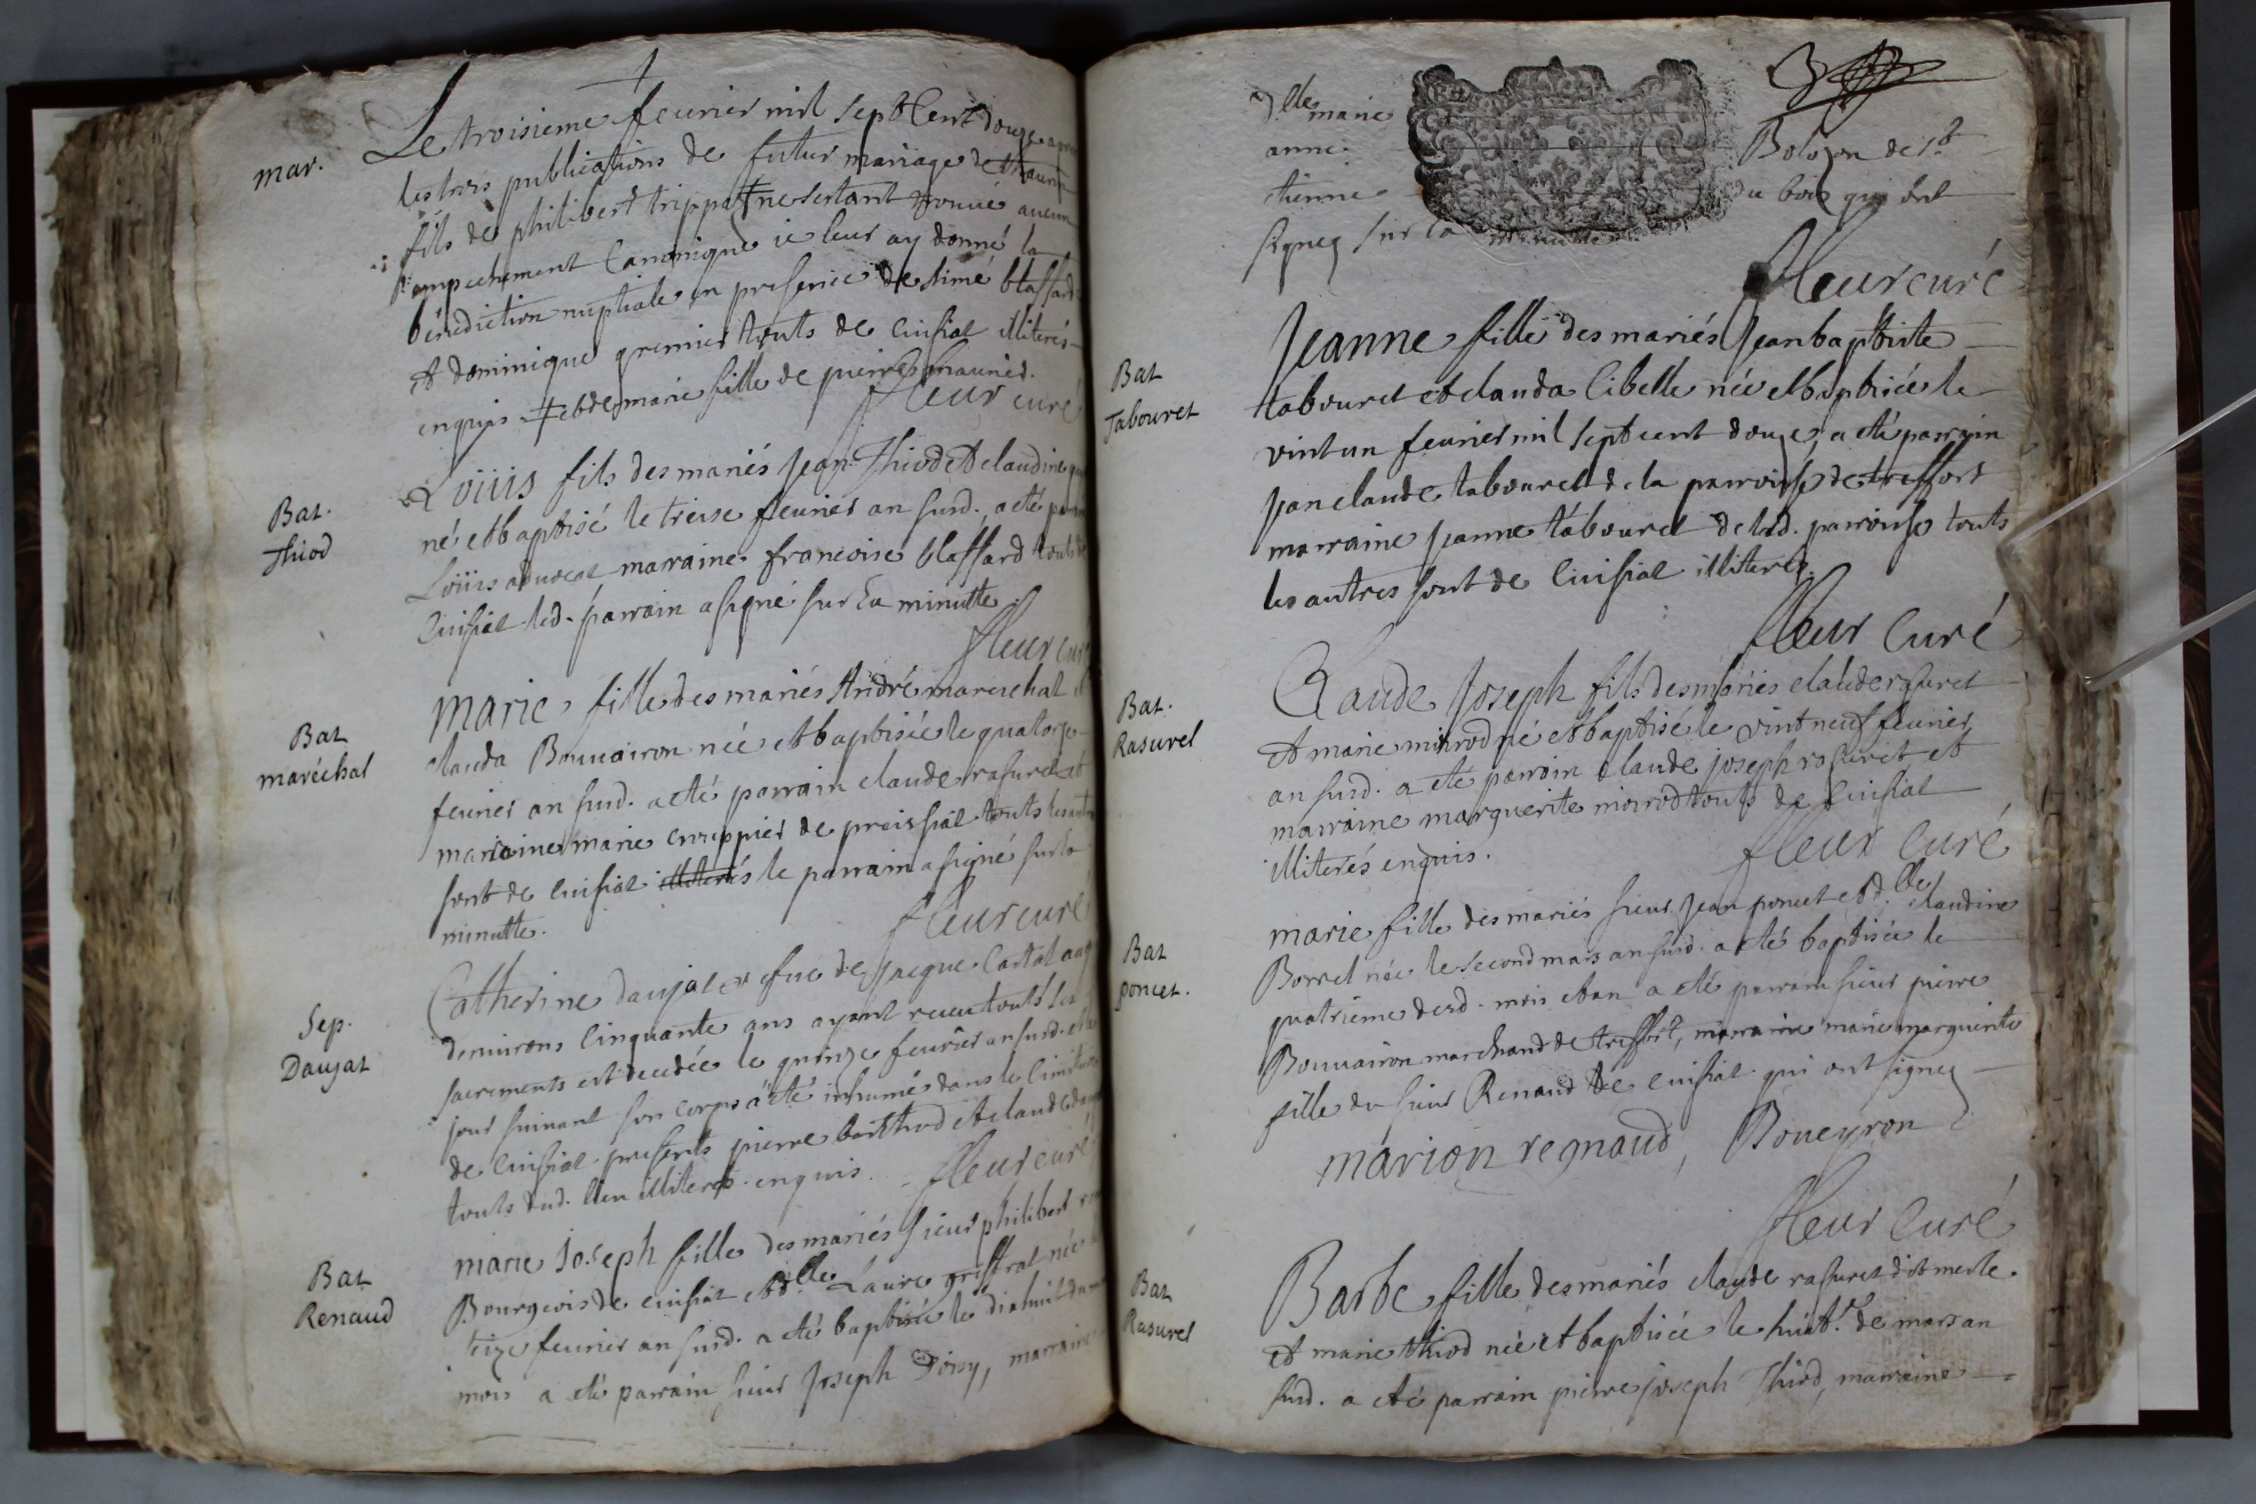 mar.
Le troisieme feurier mil sept Cent douze apres
les trois publications de futur mariage de
fils de philibert trippat ne sestant trouué aucun
empechement Canonique ie leur ay donné la
bénediction nuptiale en presence de aimé blassard
et dominique gremier touts de Cuisiat illiterés
enquis et de marie fille de pierre maurier.
fleur curé
Bat.
Thiod
Loüis fils des mariés Jean Thiod et claudine
né et baptisé le treise feurier an susd. a eté parrain
Loüis marraine francoise blassard touts de
Cuisiat led. parrain a signé sur la minutte.
fleur curé
Bat
maréchal
Marie fille des mariés André marechal et
clauda Bouuairon née et baptisée le quatorze
feurier an susd. a eté parrain claude rasurel et
maraine marie de preissiat touts les autres
sont de cuisiat illiterés le parrain a signé sur la
minutte.
fleur curé
Sep.
Daujat
Catherine daujat de Jacque Castat aagée
denuirons Cinquante ans ayant receu touts les
sacrements est decedée le quinze feurier an susd. et le
jour suiuant son corps a eté inhumé dans le Cimitiere
de Cuisiat presents pierre et claude
touts dud. lieu illiterés enquis.
fleur curé
Bat
Renaud
marie Joseph fille des mariés sieur philibert
Bourgeois de cuisiat et d.lle Laure née le
seize feurier an susd. a eté baptisée le dixhuit du
mois a eté parrain sieur Joseph marraine
d.lle marie
anne
etienne
signez sur la minutte
Bolozon de st
du bois qui ont
fleur curé
Bat
Tabouret
Jeanne fille des mariés Jean baptiste
tabouret et clauda Cibelle née et baptisée le
vint un feurier mil sept cent douze, a eté parrain
Jean claude tabouret de la parroisse de treffort
marraine Jeanne tabouret de lad. parroisse touts
les autres sont de Cuisiat illiterez.
fleur Curé
Bat.
Rasurel
Claude Joseph fils des mariés claude rasurel
et marie morrod né et baptisé le vint neuf feurier
an susd. a eté parrain Claude joseph rasurel et
marraine marguerite morrod touts de Cuisiat
illiterés enquis.
fleur Curé
Bat
poncet.
marie fille des mariés sieur Jean poncet et d.lle claudine
Borrel née le second mars an susd. a eté baptisée le
quatrieme desd. mois et an a eté parrain sieur pierre
Bouuairon marchand de treffort, marraine marie marguerite
fille du sieur Renaud de cuisiat qui ont signez
marion regnaud, Boueyron
fleur Curé
Bat
Rasurel
Barbe fille des mariés claude rasurel dit merle
et marie thiod née et baptisée le huit de mars an
susd. a eté parrain pierre joseph Thiod, marraine